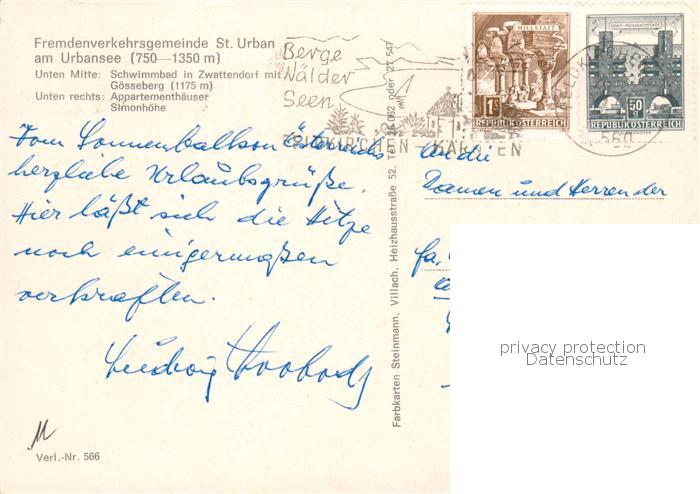 Fremdenverkehrsgemeinde St. Urban
am Urbansee (750—1350 m)
Unten Mitte: Schwimmbad in Zwattendorf mit
Gösseberg (1175 m)
Unten rechts: Appartementhäuser
Simonhöhe
Berge
Wälder
Seen
KIRCHEN - KÄRNTEN
MILLSTATT
1S
REPUBLIK ÖSTERREICH
50
g
REPUBLIK ÖSTERREICH
560
Vom Sonnenbalkon Österreichs
herzliche Urlaubsgrüße.
Hier läßt sich die Hitze
noch einigermaßen
verkraften.
Ludwig
An die
Damen und Herren der
Fa.
Farbkarten Steinmann, Villach, Heizhausstraße 52, Tel. oder 27 547
Verl.-Nr. 566
privacy protection
Datenschutz